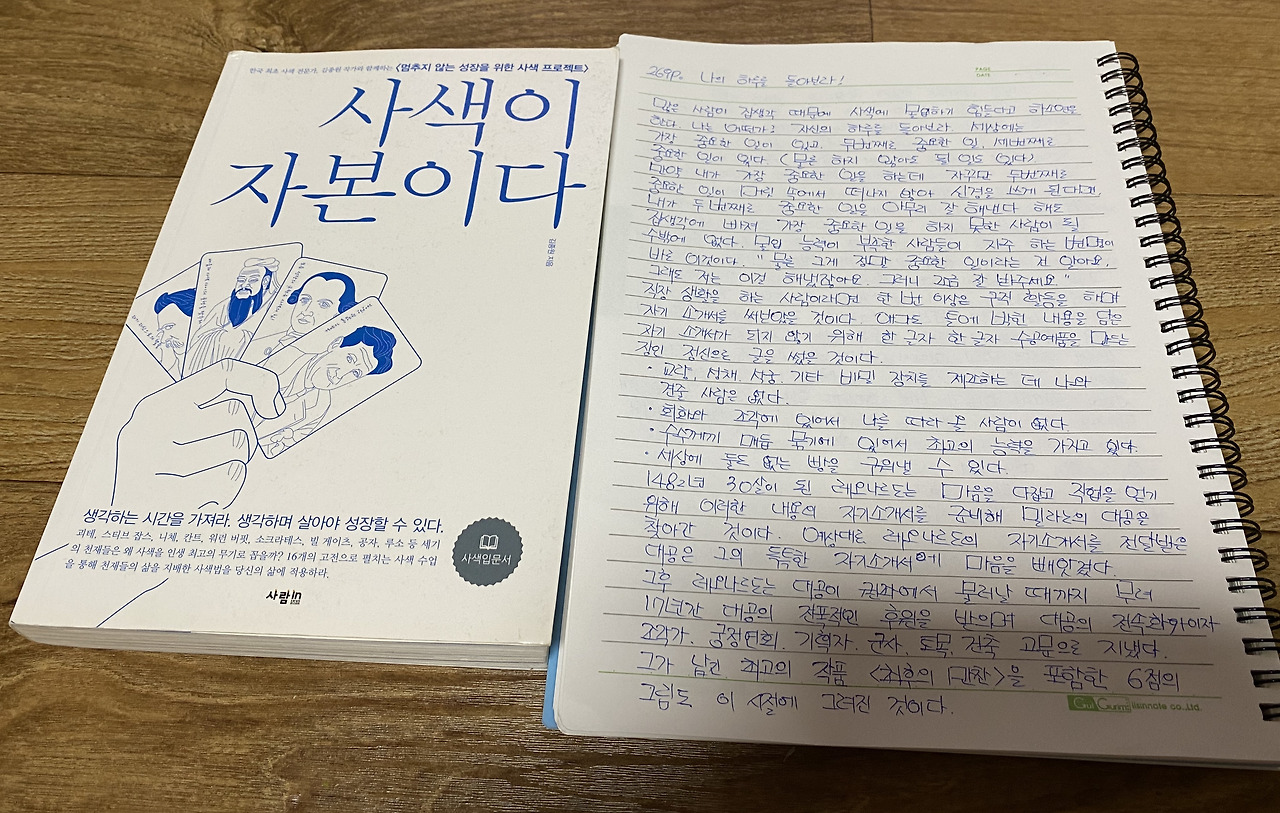 한국 최초 사색 전문가, 김종원 작가와 함께하는 <멈추지 않는 성장을 위한 사색 프로젝트>
사색이
자본이다
김종원 지음
생각하는 시간을 가져라. 생각하며 살아야 성장할 수 있다.
괴테, 스티브 잡스, 니체, 칸트, 워런 버핏, 소크라테스, 빌 게이츠, 공자, 루소 등 세기
의 천재들은 왜 사색을 인생 최고의 무기로 꼽을까? 16개의 고전으로 펼치는 사색 수업
을 통해 천재들의 삶을 지배한 사색법을 당신의 삶에 적용하라.
사색입문서
사람in
PAGE
DATE
269p. 나의 하루를 돌아보라!
많은 사람이 잡생각 때문에 사색에 몰입하기 힘들다고 하소연을
한다. 나는 어떤가? 자신의 하루를 돌아보라. 세상에는
가장 중요한 일이 있고, 두번째로 중요한 일, 세번째로
중요한 일이 있다. (물론 하지 않아도 될 일도 있다)
만약 내가 가장 중요한 일을 하는데 자꾸만 두번째로
중요한 일이 머릿 속에서 떠나지 않아 신경을 쓰게 된다면,
내가 두번째로 중요한 일을 아무리 잘 해낸다 해도
잡생각에 빠져 가장 중요한 일을 하지 못한 사람이 될
수밖에 없다. 몰입 능력이 부족한 사람들이 자주 하는 변명이
바로 이것이다. "물론 그게 정말 중요한 일이라는 건 알아요.
그래도 저는 이걸 해냈잖아요. 그러니 조금 잘 봐주세요."
직장 생활을 하는 사람이라면 한 번 이상은 구직 활동을 하며
자기 소개서를 써보았을 것이다. 아마도 틀에 박힌 내용을 담은
자기 소개서가 되지 않기 위해 한 글자 한 글자 수공예품을 만드는
장인 정신으로 글을 썼을 것이다.
· 교량, 성채, 사궁, 기타 비밀 장치를 제조하는 데 나와
견줄 사람은 없다.
· 회화와 조각에 있어서 나를 따라 올 사람이 없다.
· 수수께끼 매듭 묶기에 있어서 최고의 능력을 가지고 있다.
· 세상에 둘도 없는 빵을 구워낼 수 있다.
1482년 30살이 된 레오나르도는 마음을 다잡고 직업을 얻기
위해 이러한 내용의 자기소개서를 준비해 밀라노의 대공을
찾아간 것이다. 예상대로 레오나르도의 자기소개서를 전달받은
대공은 그의 독특한 자기소개서에 마음을 빼앗겼다.
그후 레오나르도는 대공이 권좌에서 물러날 때까지 무려
17년간 대공의 전폭적인 후원을 받으며 대공의 전속화가이자
조각가, 궁정연회, 기획자, 군사, 토목, 건축 고문으로 지냈다.
그가 남긴 최고의 작품 <최후의 만찬>을 포함한 6점의
그림도 이 시절에 그려진 것이다.
Gui Gumm ilsinnote co.,Ltd.